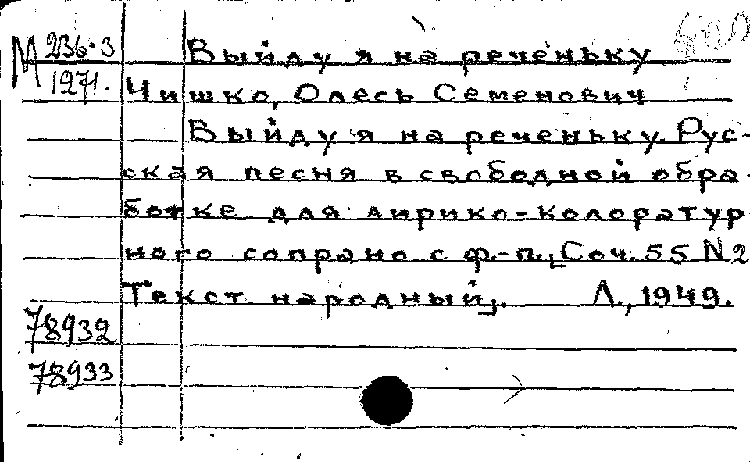 М 236-3
1971.
Выйду я на реченьку
Чишко, Олесь Семенович
Выйду я на реченьку. Рус-
ская песня в свободной обра-
ботке для лирико-колоратур
ного сопрано с ф.-п., Соч. 55 N 2
Текст народный.  Л., 1949.
78932
78933